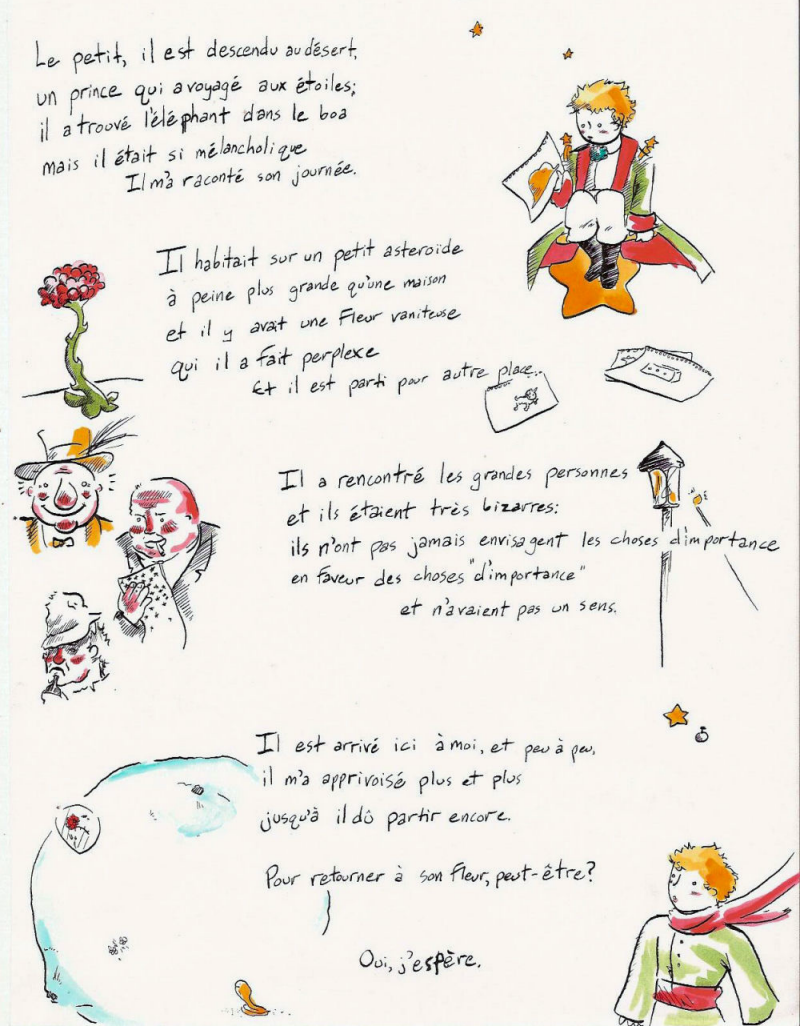 Le petit, il est descendu au désert,
un prince qui a voyagé aux étoiles;
il a trouvé l'éléphant dans le boa
mais il était si mélancholique
Il m'a raconté son journée.
Il habitait sur un petit asteroïde
à peine plus grande qu'une maison
et il y avait une fleur vaniteuse
qui il a fait perplexe
Et il est parti pour autre place...
Il a rencontré les grandes personnes
et ils étaient très bizarres:
ils n'ont pas jamais envisagent les choses d'importance
en faveur des choses "d'importance"
et n'avaient pas un sens.
Il est arrivé ici à moi, et peu à peu,
il m'a apprivoisé plus et plus
jusqu'à il dû partir encore.
Pour retourner à son fleur, peut-être?
Oui, j'espère.